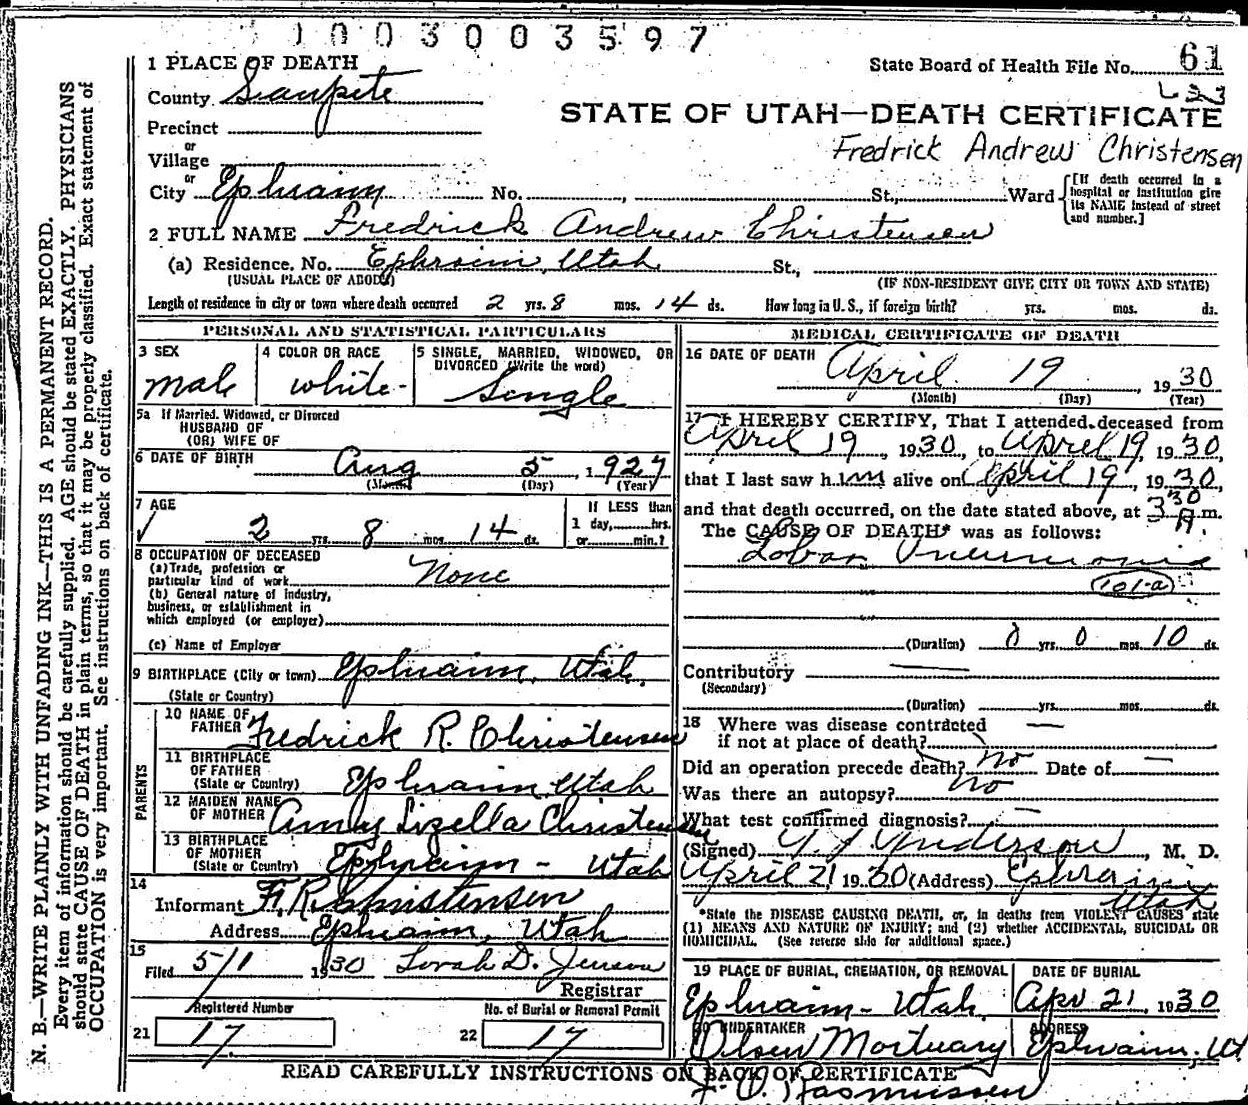 1003003597
1 PLACE OF DEATH
State Board of Health File No. 61
County Sanpete
STATE OF UTAH—DEATH CERTIFICATE
Precinct
Fredrick Andrew Christensen
or
Village
or
City Ephraim No. , St., Ward
[If death occurred in a hospital or institution give its NAME instead of street and number.]
2 FULL NAME Fredrick Andrew Christensen
(a) Residence. No. Ephraim, Utah St.,
(USUAL PLACE OF ABODE) (IF NON-RESIDENT GIVE CITY OR TOWN AND STATE)
Length of residence in city or town where death occurred 2 yrs. 8 mos. 14 ds. How long in U.S., if foreign birth? yrs. mos. ds.
PERSONAL AND STATISTICAL PARTICULARS
3 SEX
male
4 COLOR OR RACE
white
5 SINGLE, MARRIED, WIDOWED, OR DIVORCED (Write the word)
Single
5a If Married, Widowed, or Divorced
HUSBAND OF
(OR) WIFE OF
6 DATE OF BIRTH Aug 5, 1927
(Month) (Day) (Year)
7 AGE
2 yrs. 8 mos. 14 ds.
If LESS than
1 day, hrs.
or min.?
8 OCCUPATION OF DECEASED
(a) Trade, profession or
particular kind of work None
(b) General nature of industry,
business, or establishment in
which employed (or employer)
(c) Name of Employer
9 BIRTHPLACE (City or town) Ephraim, Utah.
(State or Country)
PARENTS
10 NAME OF
FATHER Fredrick R. Christensen
11 BIRTHPLACE
OF FATHER
(State or Country) Ephraim, Utah
12 MAIDEN NAME
OF MOTHER Amy Lizella Christensen
13 BIRTHPLACE
OF MOTHER
(State or Country) Ephraim - Utah
14
Informant F. R. Christensen
Address Ephraim, Utah
15
Filed 5/1 1930 Lorah D. Jensen
Registrar
Registered Number
21 17
No. of Burial or Removal Permit
22 17
MEDICAL CERTIFICATE OF DEATH
16 DATE OF DEATH April 19, 1930
(Month) (Day) (Year)
17 I HEREBY CERTIFY, That I attended deceased from
April 19, 1930, to April 19, 1930,
that I last saw him alive on April 19, 1930,
and that death occurred, on the date stated above, at 3 30 A m.
The CAUSE OF DEATH* was as follows:
Lobar Pneumonia
101-a
(Duration) 0 yrs. 0 mos. 10 ds.
Contributory —
(Secondary)
(Duration) yrs. mos. ds.
18 Where was disease contracted
if not at place of death? —
Did an operation precede death? no Date of —
Was there an autopsy? no
What test confirmed diagnosis? —
(Signed) Anderson, M. D.
April 21 1930 (Address) Ephraim
Utah
*State the DISEASE CAUSING DEATH, or, in deaths from VIOLENT CAUSES state
(1) MEANS AND NATURE OF INJURY; and (2) whether ACCIDENTAL, SUICIDAL OR
HOMICIDAL. (See reverse side for additional space.)
19 PLACE OF BURIAL, CREMATION, OR REMOVAL
Ephraim - Utah.
DATE OF BURIAL
Apr 21, 1930
20 UNDERTAKER
Olsen Mortuary
ADDRESS
Ephraim, Ut
READ CAREFULLY INSTRUCTIONS ON BACK OF CERTIFICATE
Rasmussen
N. B.—WRITE PLAINLY WITH UNFADING INK—THIS IS A PERMANENT RECORD.
Every item of information should be carefully supplied. AGE should be stated EXACTLY. PHYSICIANS
should state CAUSE OF DEATH in plain terms, so that it may be properly classified. Exact statement of
OCCUPATION is very important. See instructions on back of certificate.